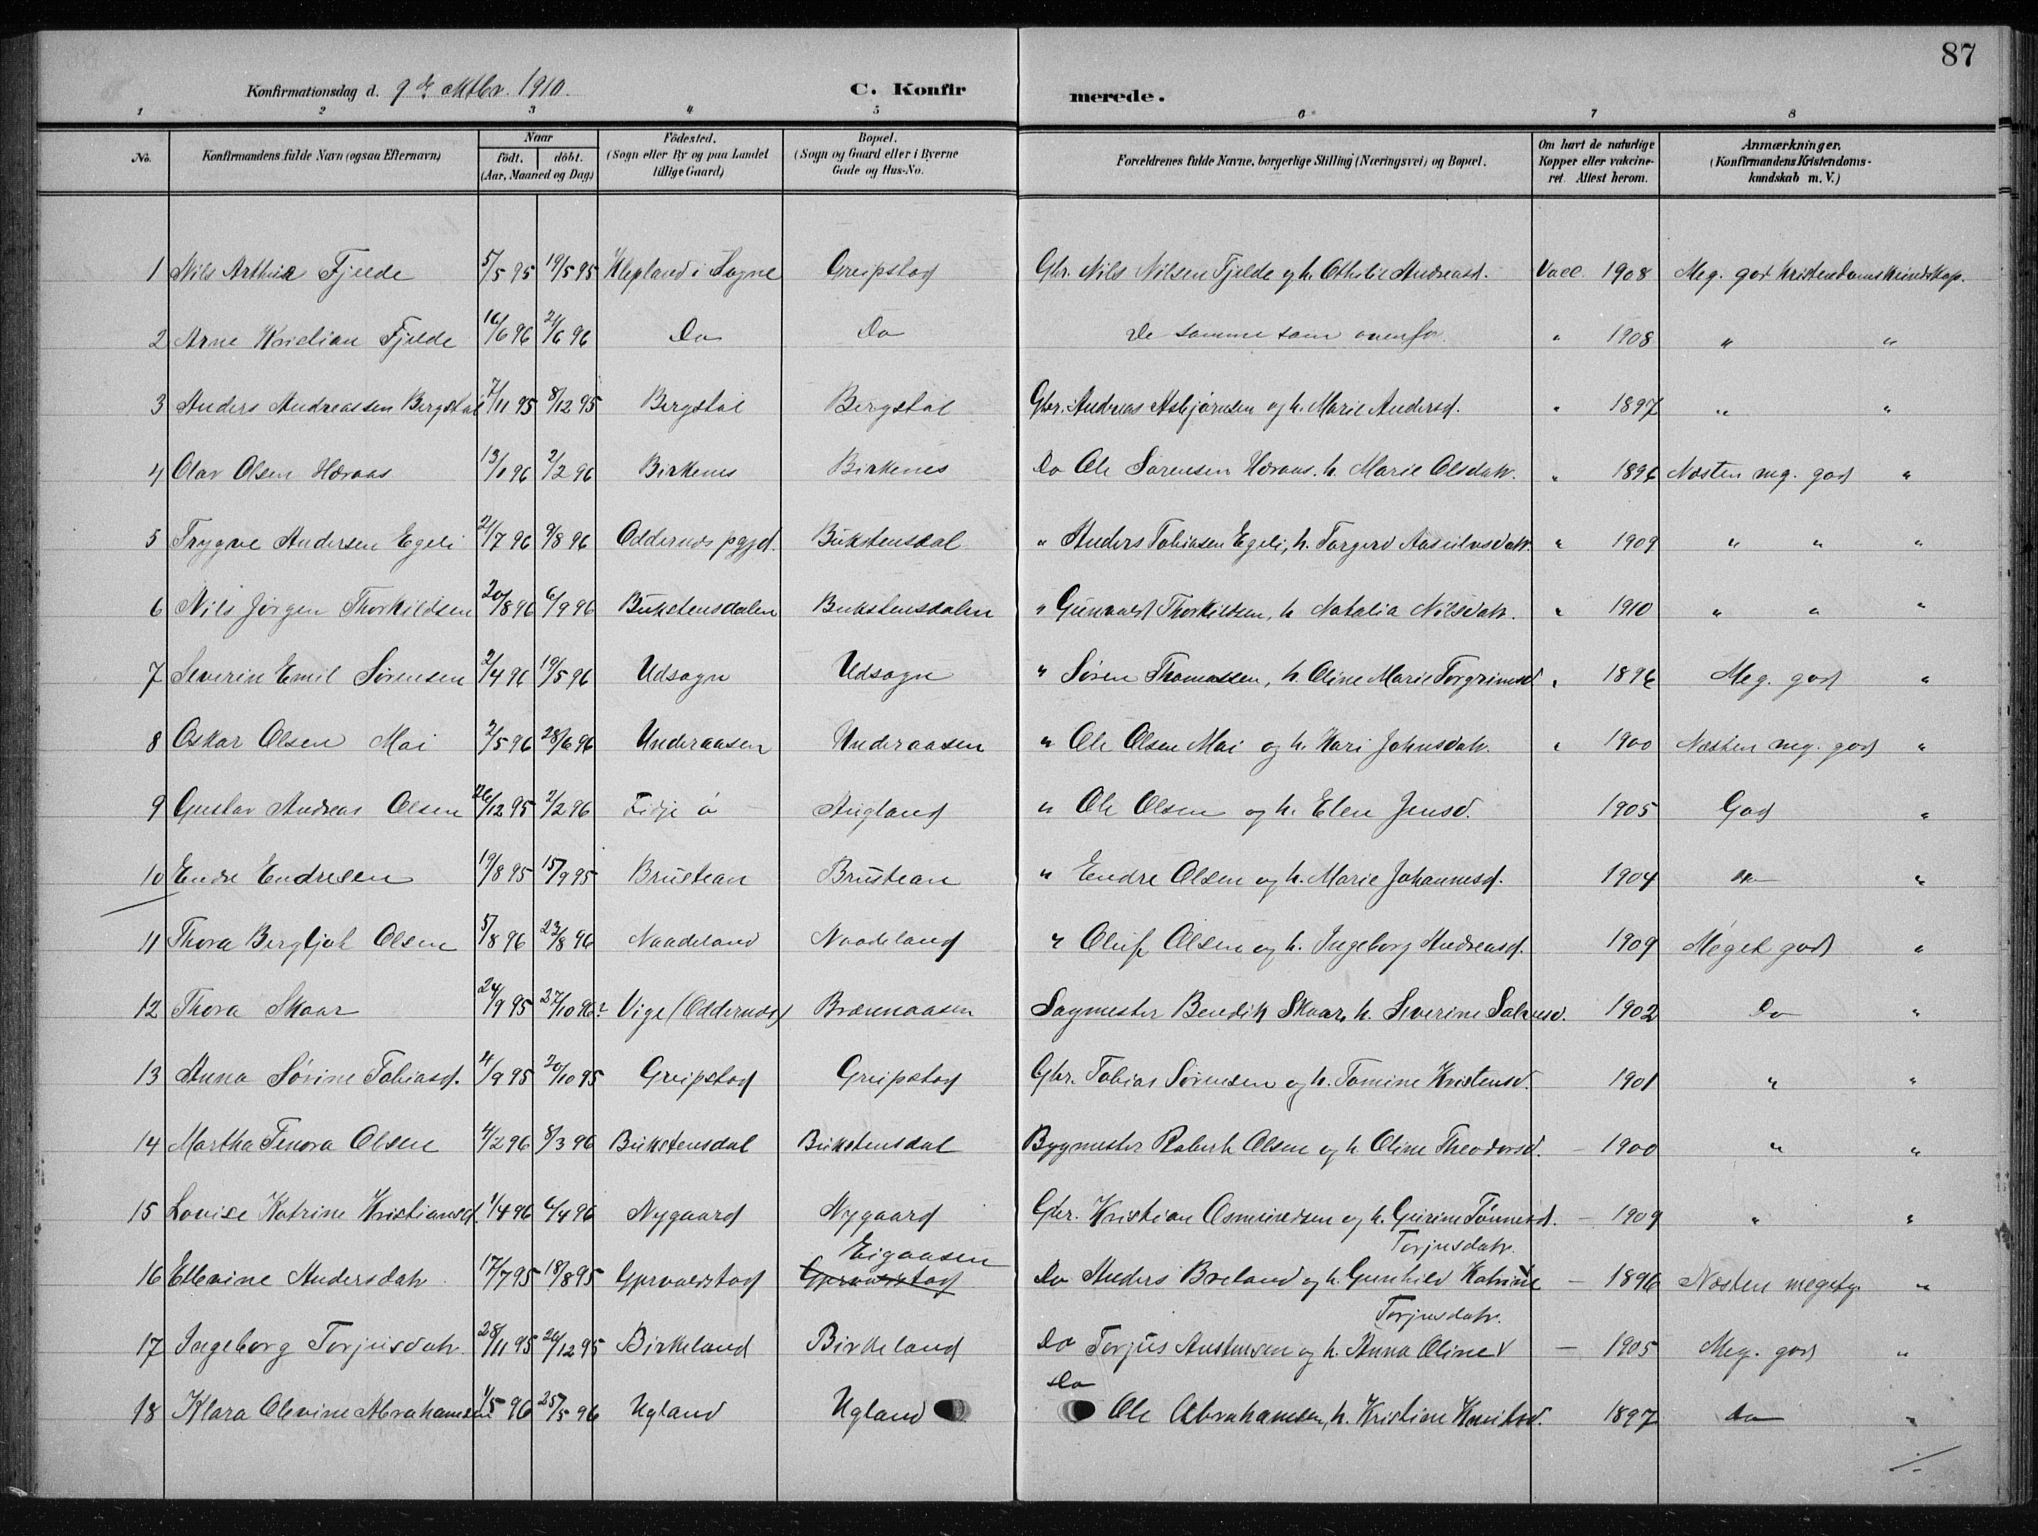 87
Konfirmationsdag d. 9de oktbr. 1910. C. Konfir merede.
1 2 3 4 5 6 7 8
No. Konfirmandens fulde Navn (ogsaa Efternavn) Naar födt. döbt. (Aar, Maaned og Dag) Födested. (Sogn eller By og paa Landet tillige Gaard) Bopæl. (Sogn og Gaard eller i Byerne Gade og Hus-No. Forældrenes fulde Navne, borgerlige Stilling (Næringsvei) og Bopæl. Om havt de naturlige Kopper eller vakcineret. Attest herom. Anmærkninger. (Konfirmandens Kristendomskundskab m. V.)
1 Nils Arthur Fjelde 5/5 95 19/5 95 Klepland i Søgne Greipstad Gbr. Nils Nilsen Fjelde og h. Othilie Andreasd. Vacc. 1908 Meg. god Kristendomskundskap.
2 Arne Kristian Fjelde 16/6 96 21/6 96 Do Do De samme som ovenfor. " 1908 " "
3 Anders Andreassen Bergstøl 7/11 95 8/12 95 Bergstøl Bergstøl Gbr. Andreas Asbjørnsen og h. Marie Andersd. " 1897 " "
4 Olav Olsen Høraas 13/1 96 2/2 96 Birkenes Birkenes Do Ole Sørensen Høraas. h. Marie Olsdatr. " 1896 Næsten mg. god "
5 Trygve Andersen Egeli 21/7 96 9/8 96 Oddernes pgjd. Bukstensdal " Anders Tobiasen Egeli, h. Torgerd Aasulvsdatr. " 1909 " " "
6 Nils Jørgen Thorkildsen 20/8 96 6/9 96 Bukstensdalen Bukstensdalen " Gunvald Thorkildsen, h Natalia Nilsdatr. " 1910 " " "
7 Severin Emil Sørensen 2/4 96 19/5 96 Udsogn Udsogn " Søren Thomassen, h. Oline Marie Torgrimsd. " 1896 Meg. god "
8 Oskar Olsen Moi 2/5 96 28/6 96 Underaasen Underaasen " Ole Olsen Moi og h. Kari Johnsdatr. " 1900 Næsten mg. god "
9 Gustav Andreas Olsen 26/12 95 2/2 96 Fidje ö Augland " Ole Olsen og h. Elen Jensd. 1905 God "
10 Endre Endresen 19/8 95 15/9 95 Brustean Brustean " Endre Olsen og h. Marie Johannesd. 1904 "
11 Thora Bergljot Olsen 5/8 96 23/8 96 Naadeland Naadeland " Oluf Olsen og h. Ingeborg Andreasd. 1909 Meget god "
12 Thora Skaar 24/9 95 27/10 96? Vige (Oddernes) Brænnaasen Sagmester Bendik Skaar, h. Severine Salvesd. 1902 Do "
13 Anna Sørine Tobiasd. 4/9 95 20/10 95 Greipstad Greipstad Gbr. Tobias Sørensen og h. Tomine Kristensd. 1901 " "
14 Martha Tenora Olsen 4/2 96 8/3 96 Bukstensdal Bukstensdal Bygmester Robert Olsen og h. Oline Theodorsd. – 1900 " "
15 Lovise Katrine Kristiansd. 1/4 96 6/4 96 Nygaard Nygaard Gbr. Kristian Osmundsen og h. Gurine Tønnesd. – 1909 " "
Eigaasen Torjusdatr.
16 Ellevine Andersdatr. 17/7 95 18/8 95 Gprvaldstad Gprvaldstad Do Anders Breland og h. Gunhild Katrine – 1896 Næsten meget g. "
Torjusdatr.
17 Ingeborg Torjusdatr. 28/11 95 26/12 95 Birkeland Birkeland Do Torjus Austensen og h. Anna Oline – 1905 Meg. god "
Do
18 Klara Olevine Abrahamsen 1/5 96 25/5 96 Ugland Ugland Ole Abrahamsen, h. Kristine Knutsd. 1897 Do "